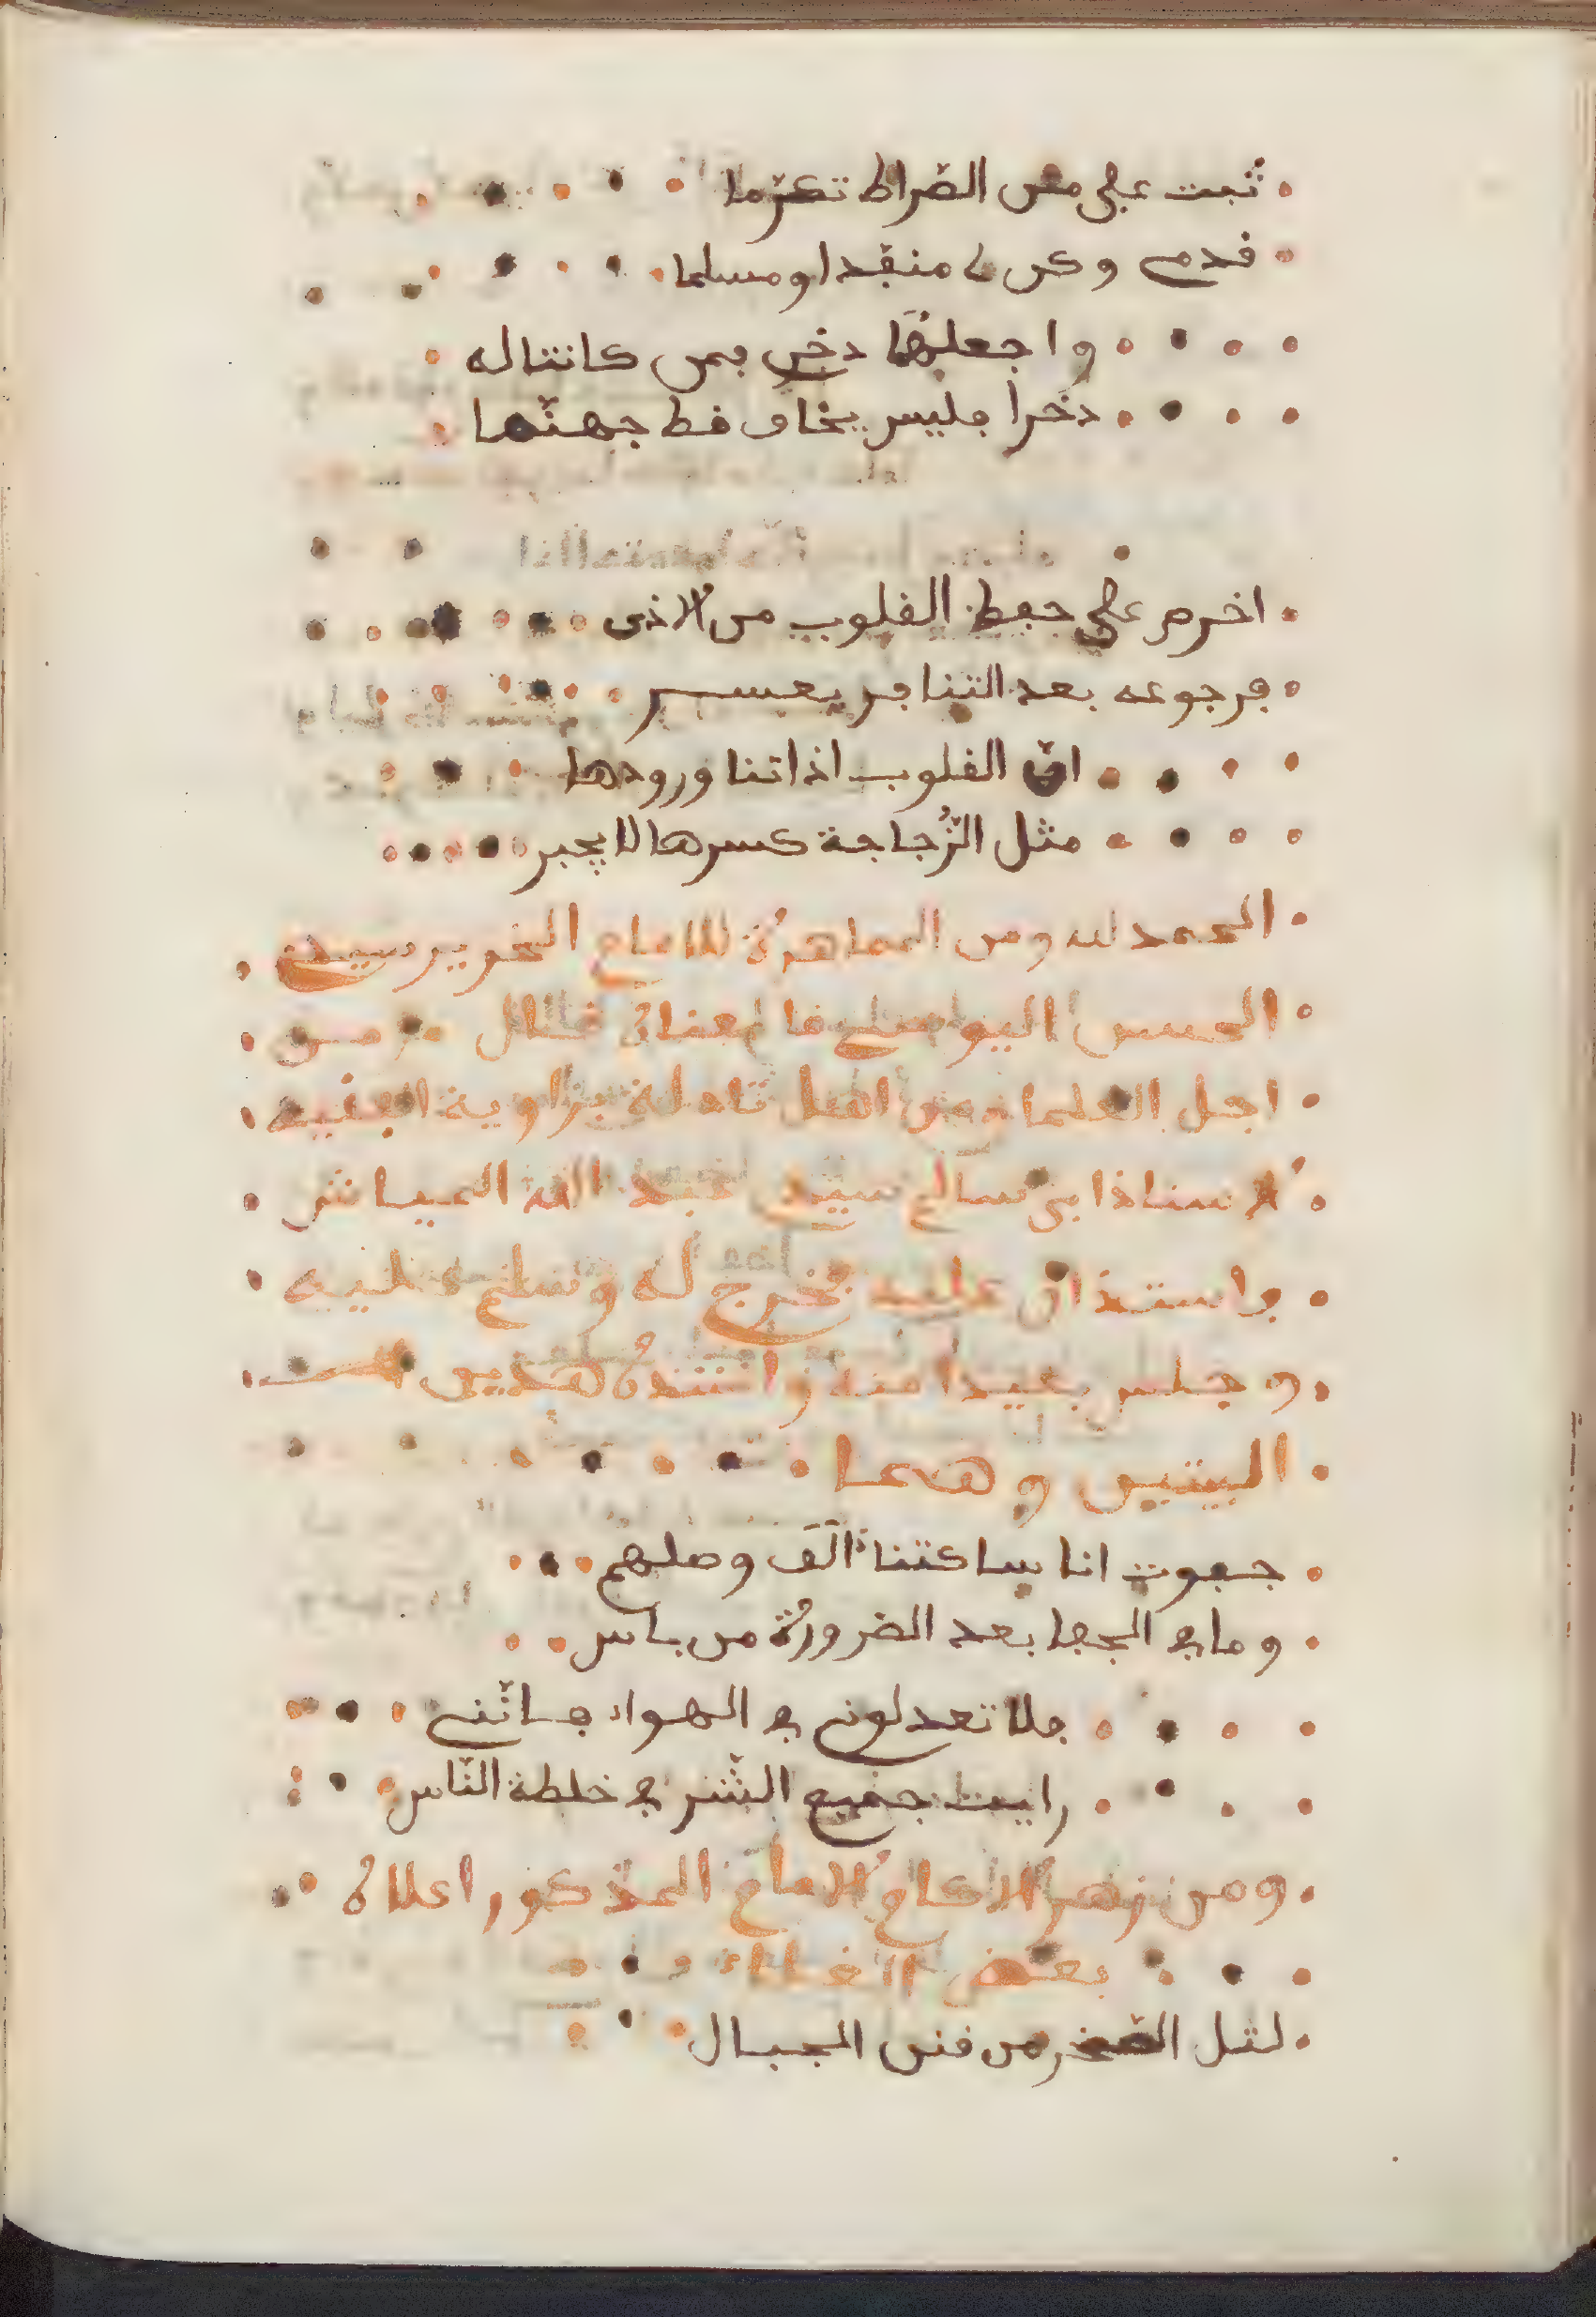 ثبت على متن الصّراط تكرّما
قدمي وكن لي منقذا ومسلما
واجعلهما دخري فمن كانتا له
دخرا فليس يخاف قط جهنّما
احرص على حفظ القلوب من الاذى
فرجوعه بعد التنافر يعسر
انّ القلوب اذا تنا ورودها
مثل الزُّجاجة كسرها لا يجبر
الحمد لله ومن المحاضرة للامام النحوير سيدي
الحسن اليوسي ما معناه قال
اجل العلما من اهل تادلة بزاوية الفقيه
الاستاذ ابي سالم سيدي عبد الله العياشي
فاستذان عليه فخرج له وسلم عليه
وجلس بعيدا منه وانشده هذين
البيتين وهما
جفوت اناسا كنتُ الَف وصلهم
وما في الجفا بعد الضرورة من باس
فلا تعدلوني في الهواء فانّني
رايت جميع الشّر في خلطة النّاس
ومن زهر الاكام الامام المذكور اعلاه
بعض
لنقل الصّخر من قنن الجبال